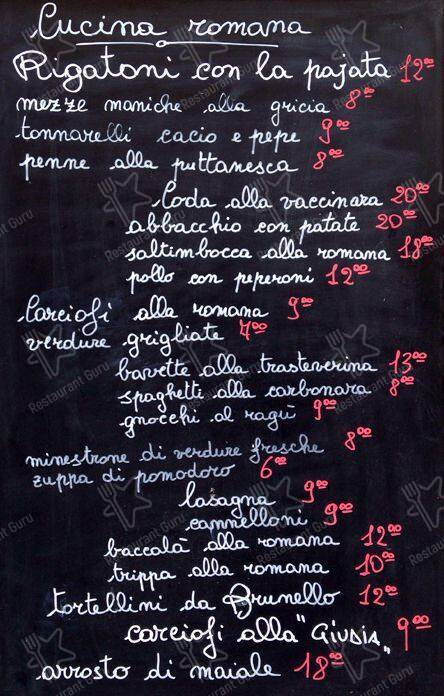 Cucina romana
Rigatoni con la pajata 12⁰⁰
mezze maniche alla gricia 8⁰⁰
tonnarelli cacio e pepe 9⁰⁰
penne alla puttanesca 8⁰⁰
Coda alla vaccinara 20⁰⁰
abbacchio con patate 20⁰⁰
saltimbocca alla romana 18⁰⁰
pollo con peperoni 12⁰⁰
Carciofi alla romana 9⁰⁰
verdure grigliate 7⁰⁰
bavette alla trasteverina 13⁰⁰
spaghetti alla carbonara 8⁰⁰
gnocchi al ragù 9⁰⁰
minestrone di verdure fresche 8⁰⁰
zuppa di pomodoro 6⁰⁰
lasagna 9⁰⁰
cannelloni 9⁰⁰
baccalà alla romana 12⁰⁰
trippa alla romana 10⁰⁰
tortellini da Brunello 12⁰⁰
carciofi alla "GIUDIA" 9⁰⁰
arrosto di maiale 18⁰⁰
Restaurant Guru